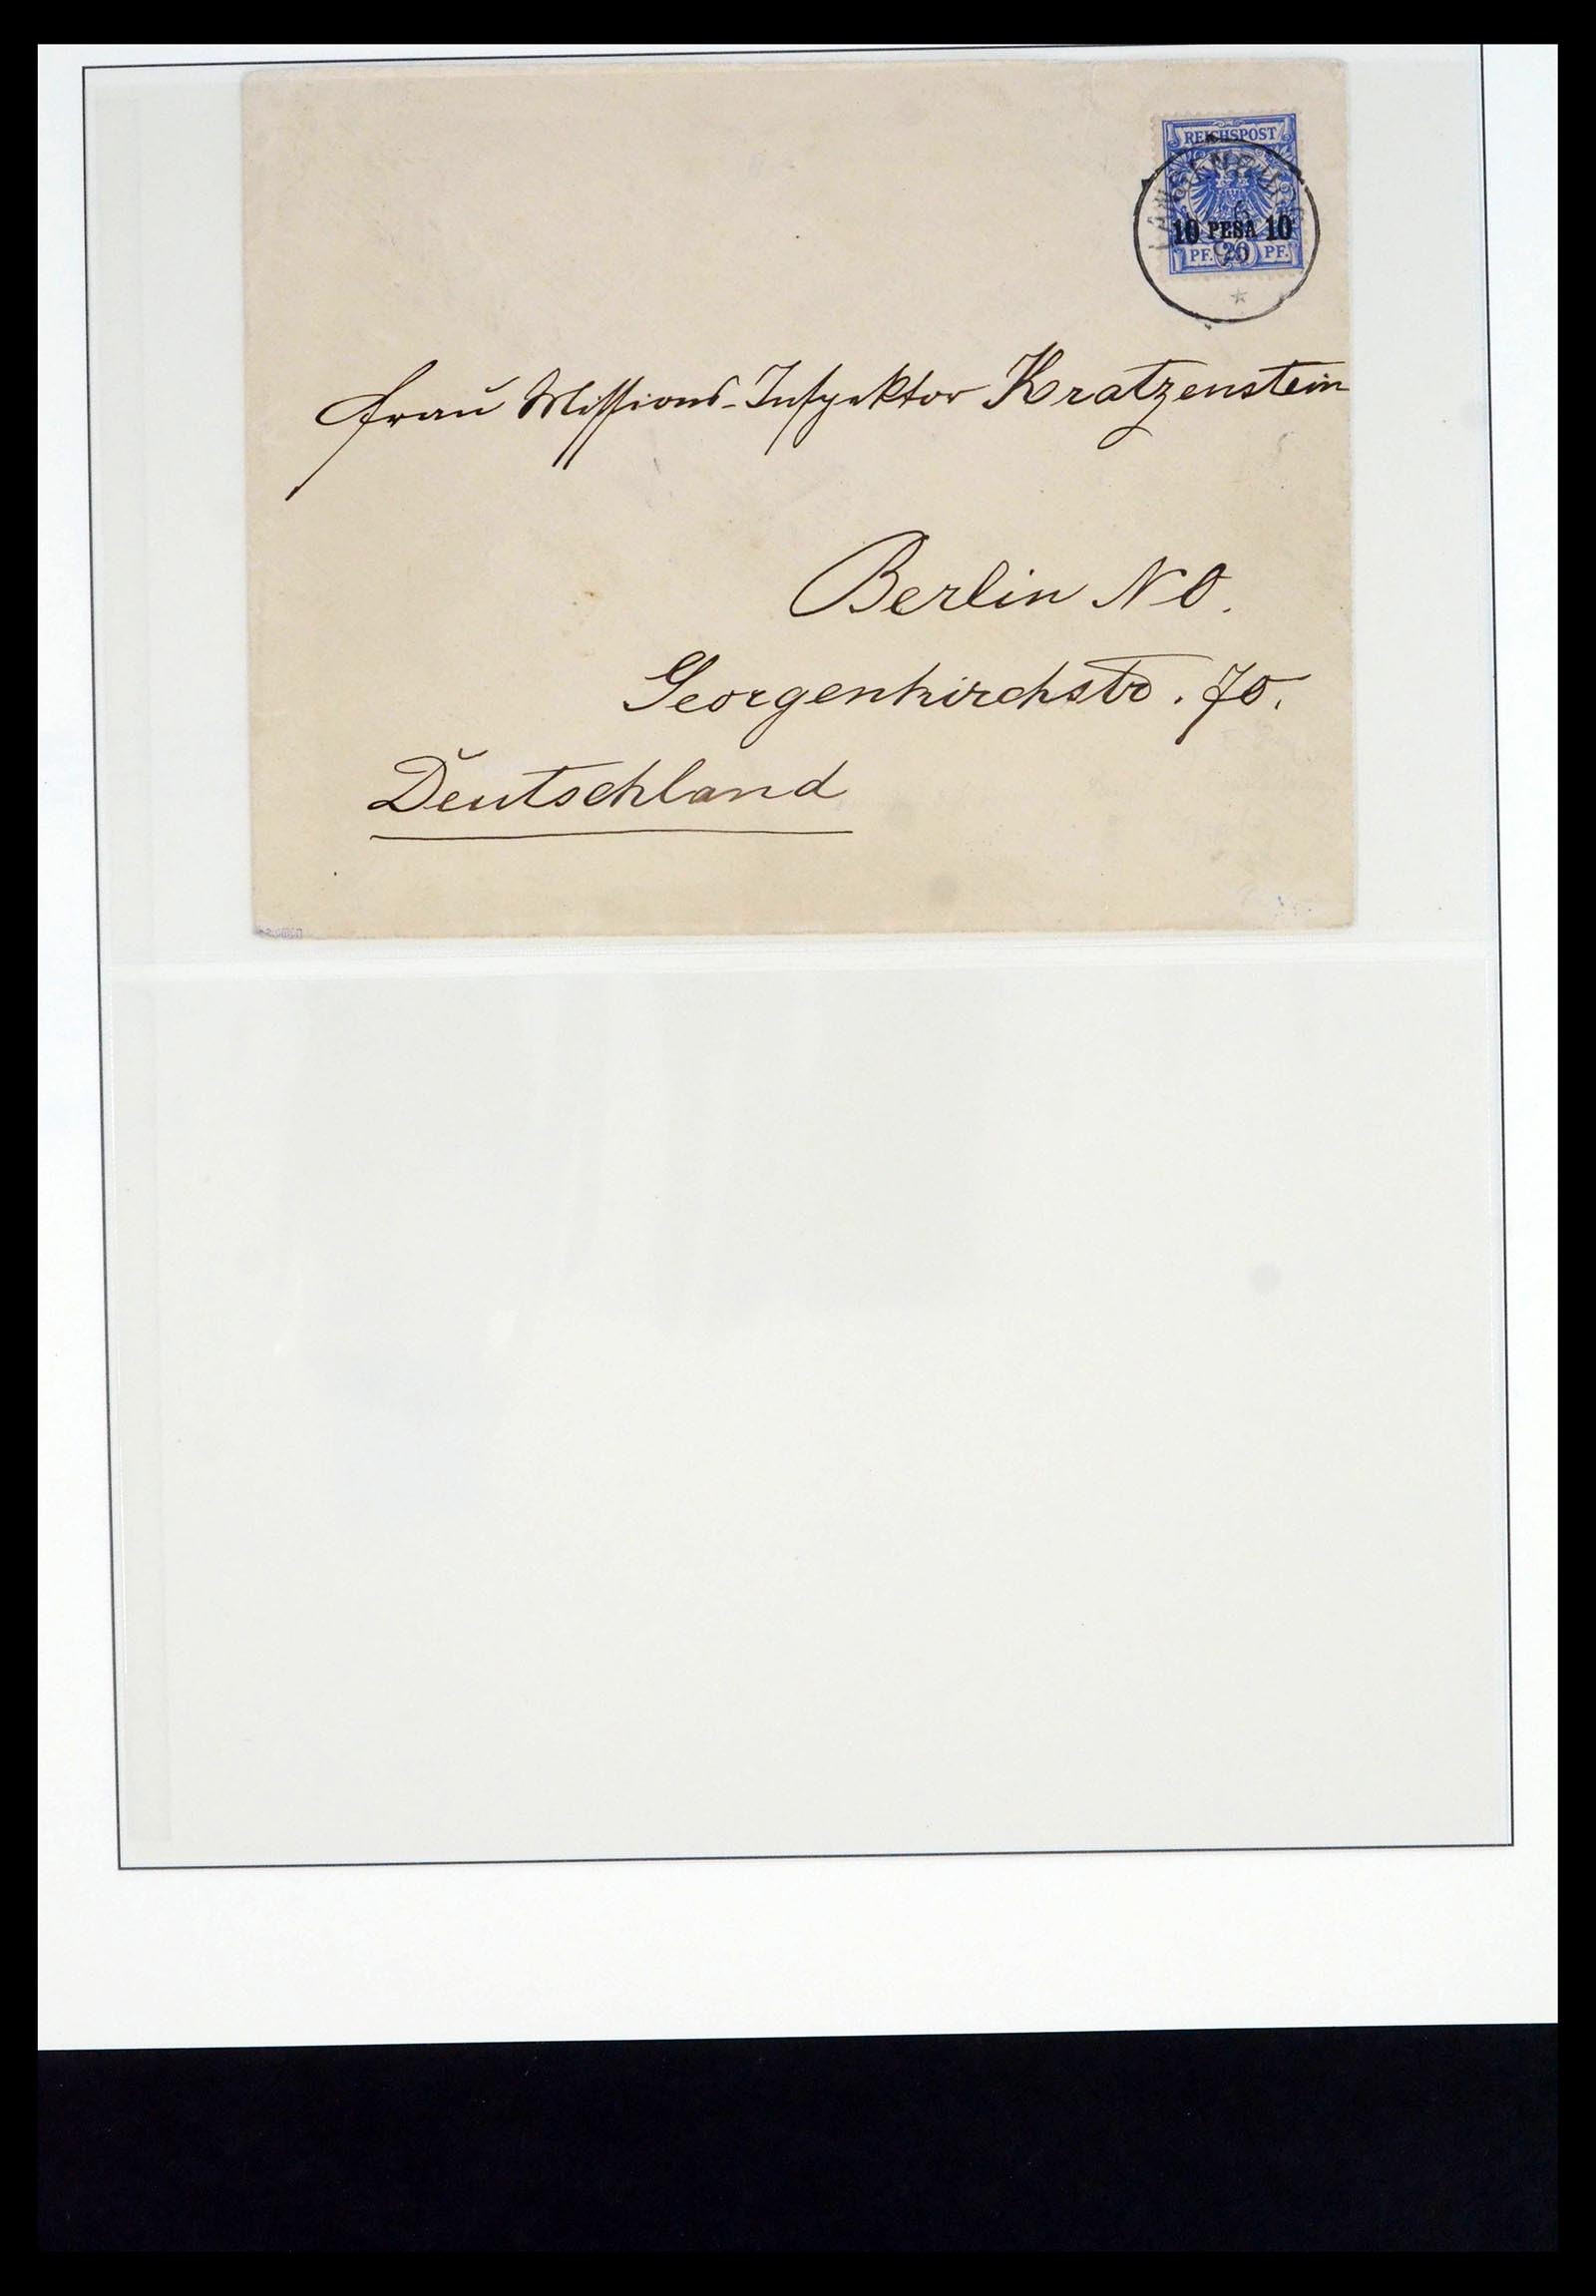 REICHSPOST
10 PESA 10
PF. 20 PF.
Frau Missions-Inspektor Kratzenstein
Berlin NO.
Georgenkirchstr. 70.
Deutschland